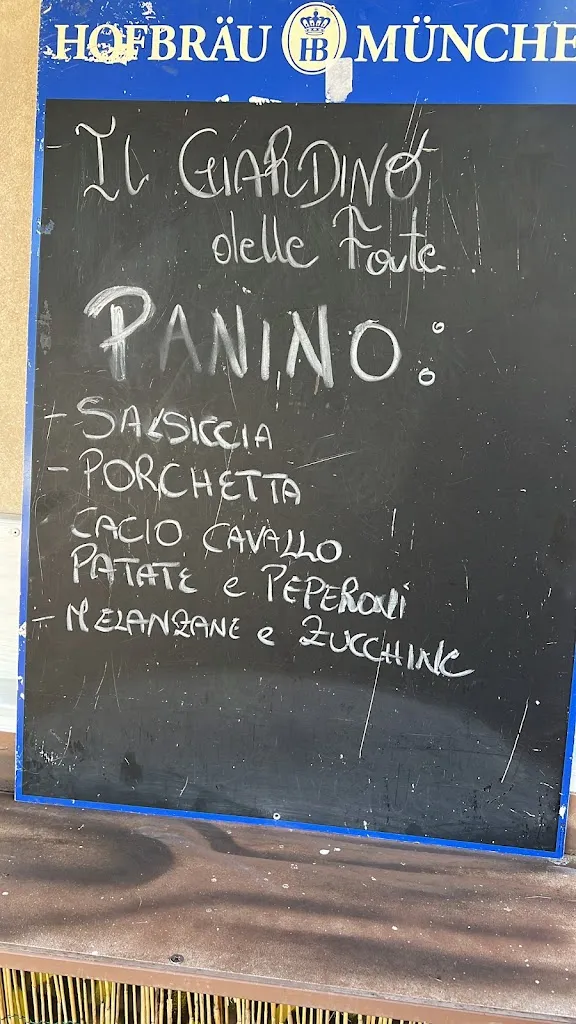 HOFBRÄU HB MÜNCHE
Il GIARDINO
delle Fate
PANINO:
- SALSICCIA
- PORCHETTA
CACIO CAVALLO
PATATE e PEPERONi
- MELANZANE e ZUCCHINE